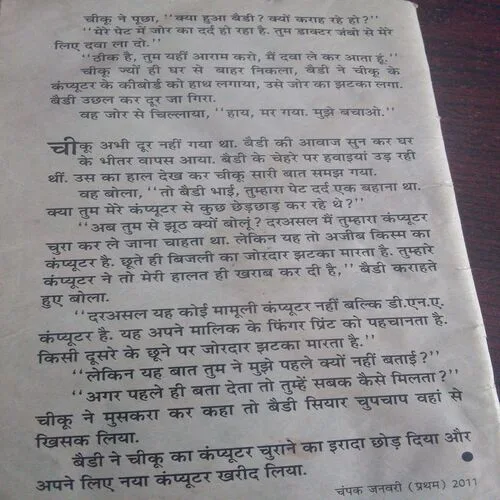 चीकू ने पूछा, ‘‘क्या हुआ बैडी? क्यों कराह रहे हो?’’
‘‘मेरे पेट में जोर का दर्द हो रहा है. तुम डाक्टर जंबो से मेरे
लिए दवा ला दो.’’
‘‘ठीक है, तुम यहीं आराम करो, मैं दवा ले कर आता हूं.’’
चीकू ज्यों ही घर से बाहर निकला, बैडी ने चीकू के
कंप्यूटर के कीबोर्ड को हाथ लगाया, उसे जोर का झटका लगा.
बैडी उछल कर दूर जा गिरा.
वह जोर से चिल्लाया, ‘‘हाय, मर गया. मुझे बचाओ.’’
चीकू अभी दूर नहीं गया था. बैडी की आवाज सुन कर घर
के भीतर वापस आया. बैडी के चेहरे पर हवाइयां उड़ रही
थीं. उस का हाल देख कर चीकू सारी बात समझ गया.
वह बोला, ‘‘तो बैडी भाई, तुम्हारा पेट दर्द एक बहाना था.
क्या तुम मेरे कंप्यूटर से कुछ छेड़छाड़ कर रहे थे?’’
‘‘अब तुम से झूठ क्यों बोलूं? दरअसल मैं तुम्हारा कंप्यूटर
चुरा कर ले जाना चाहता था. लेकिन यह तो अजीब किस्म का
कंप्यूटर है. छूते ही बिजली का जोरदार झटका मारता है. तुम्हारे
कंप्यूटर ने तो मेरी हालत ही खराब कर दी है,’’ बैडी कराहते
हुए बोला.
‘‘दरअसल यह कोई मामूली कंप्यूटर नहीं बल्कि डी.एन.ए.
कंप्यूटर है. यह अपने मालिक के फिंगर प्रिंट को पहचानता है.
किसी दूसरे के छूने पर जोरदार झटका मारता है.’’
‘‘लेकिन यह बात तुम ने मुझे पहले क्यों नहीं बताई?’’
‘‘अगर पहले ही बता देता तो तुम्हें सबक कैसे मिलता?’’
चीकू ने मुसकरा कर कहा तो बैडी सियार चुपचाप वहां से
खिसक लिया.
बैडी ने चीकू का कंप्यूटर चुराने का इरादा छोड़ दिया और
अपने लिए नया कंप्यूटर खरीद लिया.
चंपक जनवरी (प्रथम) 2011